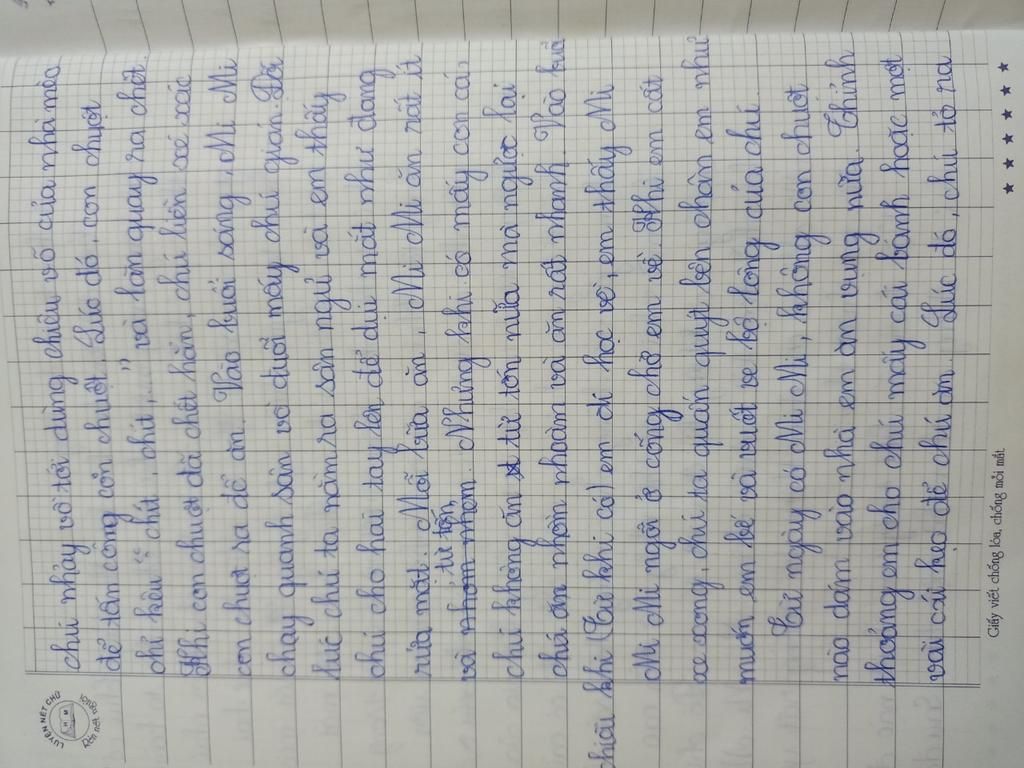 LUYỆN NÉT CHỮ
Rèn nết người
chú nhảy vồ tới dùng chiêu võ của nhà mèo
để tấn công con chuột. Lúc đó, con chuột
chỉ kêu "chít, chít,..." và lăn quay ra chết.
Khi con chuột đã chết hẳn, chú liền xé xác
con chuột ra để ăn. Vào buổi sáng, Mi Mi
chạy quanh sân và đuổi mấy chú gián. Đôi
lúc chú ta nằm ra sân ngủ và em thấy
chú cho hai tay lên để dụi mắt như đang
rửa mặt. Mỗi bữa ăn, Mi Mi ăn rất ít
và nhom nhom từ tốn. Nhưng khi có mấy con cá,
chú không ăn từ tốn nữa mà ngược lại
chú ăn nhồm nhoàm và ăn rất nhanh. Vào buổi
chiều khi (Trừ khi có) em đi học về, em thấy Mi
Mi Mi ngồi ở cổng chờ em về. Khi em cất
xe xong, chú ta quấn quýt bên chân em như
muốn em bế và vuốt ve bộ lông của chú.
Từ ngày có Mi Mi, không con chuột
nào dám vào nhà em ăn vụng nữa. Thỉnh
thoảng em cho chú mấy cái bánh hoặc một
vài cái kẹo để chú ăn. Lúc đó, chú tỏ ra
Giấy viết chống lóa, chống mỏi mắt.